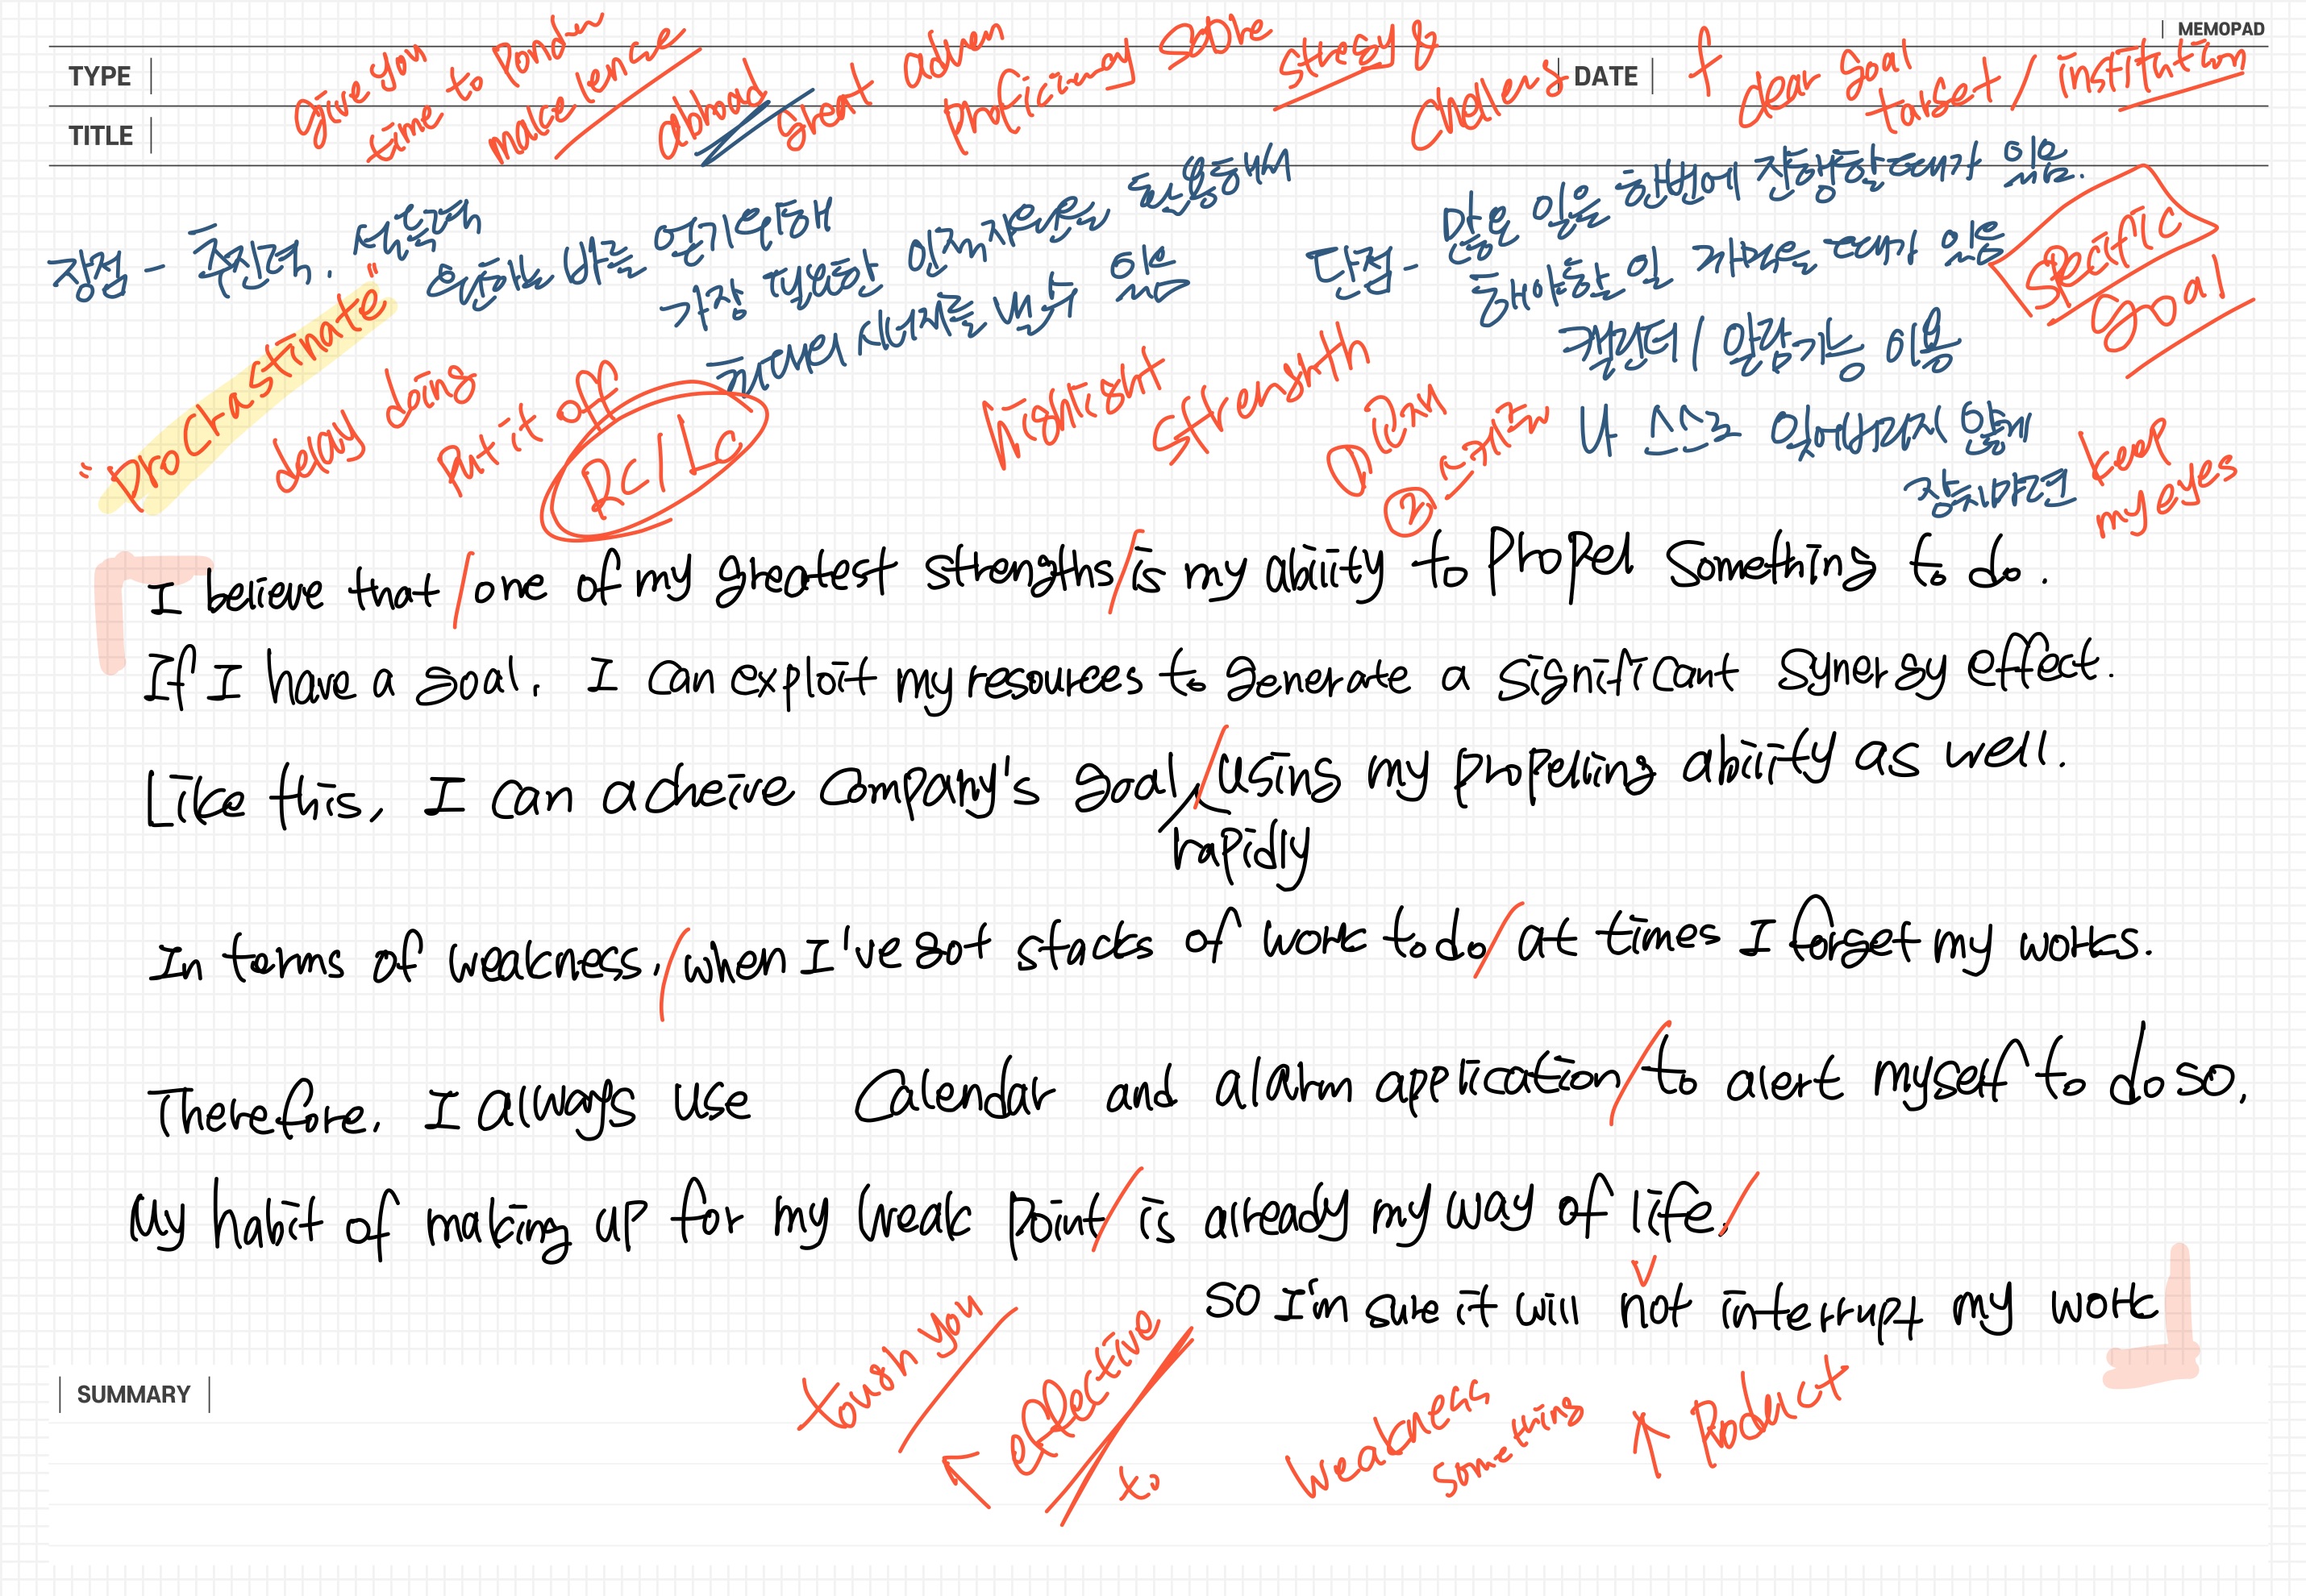 MEMOPAD
TYPE
DATE
TITLE
give you
time to ponder
make
abroad
great
proficiency score
stress &
clear goal
target / institution
장점 - 추진력, 설득력
원하는 바를 얻기위해
가장 필요한 인적자원을 활용해서
최대의 시너지를 낼 수 있음
단점 - 많은 일을 한번에 진행할때가 있음.
해야할 일 까먹을때가 있음
캘린더 / 알람기능 이용
나 스스로 잊어버리지 않게
장치마련
specific
goal
"procrastinate"
delay doing
put it off
RC/LC
highlight
strength
①
②
keep
my eyes
I believe that / one of my greatest strengths / is my abiiity to propel something to do.
If I have a goal, I can exploit my resources to generate a significant synergy effect.
Like this, I can adcheive company's goal / using my propelling abiiity as well.
rapidly
In terms of weakness, / when I've got stacks of work to do / at times I forget my works.
Therefore, I always use calendar and alarm application / to alert myself to do so.
My habit of making up for my weak point / is already my way of life, /
so I'm sure it will not interrupt my work
SUMMARY
tough you
effective
to
weakness
something
↑ product